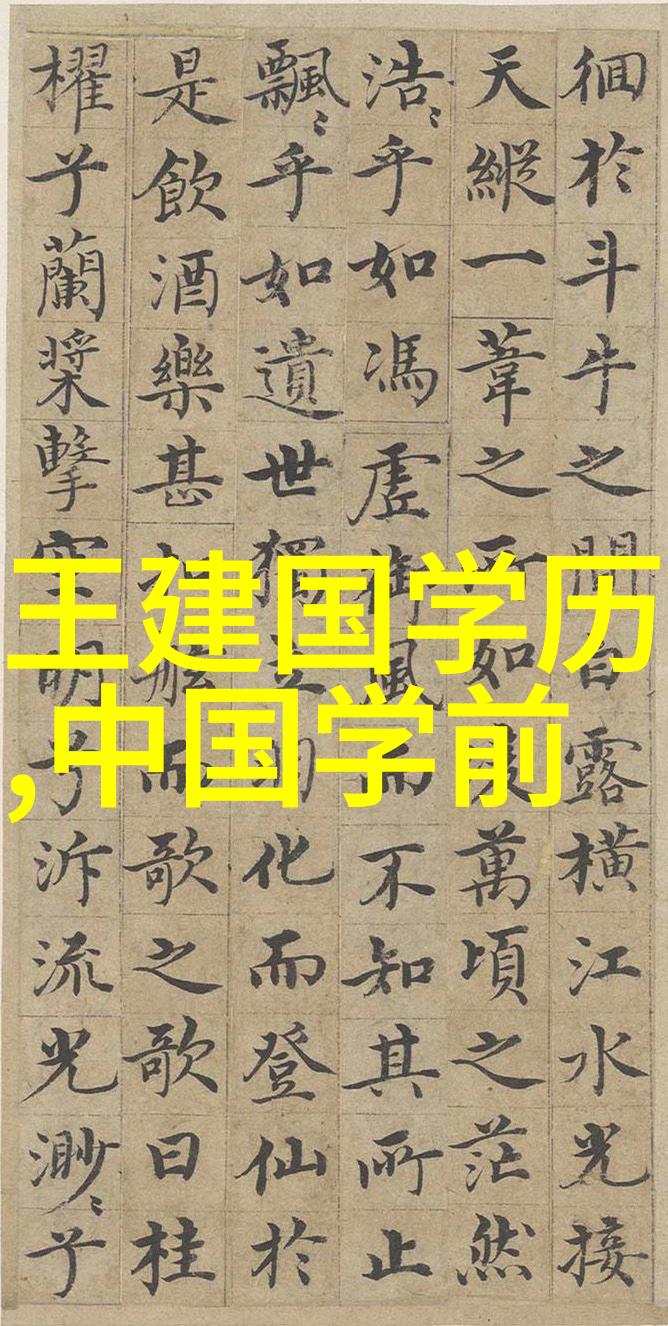 徊於斗牛之間白露橫江水光接
天縱一葦之所如凌萬頃之茫然
浩〻乎如馮虛御風而不知其所止
飄〻乎如遺世獨立羽化而登仙於
是飲酒樂甚扣舷而歌之歌曰桂
櫂兮蘭槳擊空明兮泝流光渺〻兮
王建国学历
,中国学前